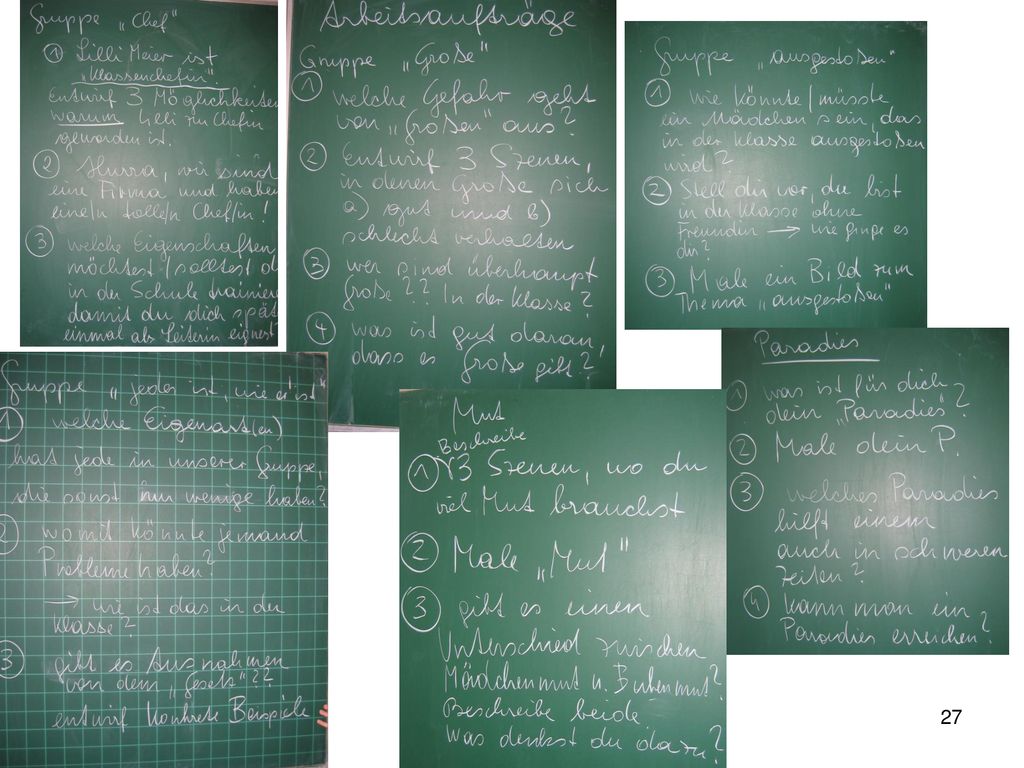 Gruppe „Chef"
① Lilli Meier ist
„Klassenchefin"
Entwirf 3 Möglichkeiten
warum Lilli zur Chefin
geworden ist.
② Hurra, wir sind
eine Firma und haben
eine/n tolle/n Chef/in!
③ welche Eigenschaften
möchtest / solltest d
in der Schule trainiere
damit du dich spät
einmal als Leiterin eignest
Arbeitsaufträge
Gruppe „Große"
① welche Gefahr geht
von „Großen" aus?
② Entwirf 3 Szenen,
in denen Große sich
a) gut und b)
schlecht verhalten
③ wer sind überhaupt
Große?? In der Klasse?
④ was ist gut daran,
dass es Große gibt?!
Gruppe „ausgestoßen"
① wie könnte / müsste
ein Mädchen sein, das
in der Klasse ausgestoßen
wird?
② Stell dir vor, du bist
in der Klasse ohne
Freundin → wie ginge es
dir?
③ Male ein Bild zum
Thema „ausgestoßen"
Gruppe „jeder ist, wie er ist"
① welche Eigenart(en)
hat jede in unserer Gruppe,
die sonst nur wenige haben?
② womit könnte jemand
Probleme haben?
→ wie ist das in der
Klasse?
③ gibt es Ausnahmen
von dem „Gesetz"??
entwirf konkrete Beispiele
Mut
Beschreibe
① 3 Szenen, wo du
viel Mut brauchst
② Male „Mut"
③ gibt es einen
Unterschied zwischen
Mädchenmut u. Bubenmut?
Beschreibe beide
Was denkst du dazu?
Paradies
① was ist für dich
dein „Paradies"?
② Male dein P.
③ welches Paradies
hilft einem
auch in schweren
Zeiten?
④ kann man ein
Paradies erreichen?
27